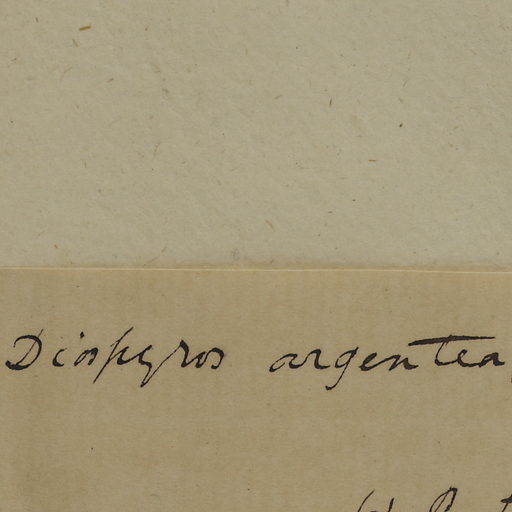 Diospyros argentea